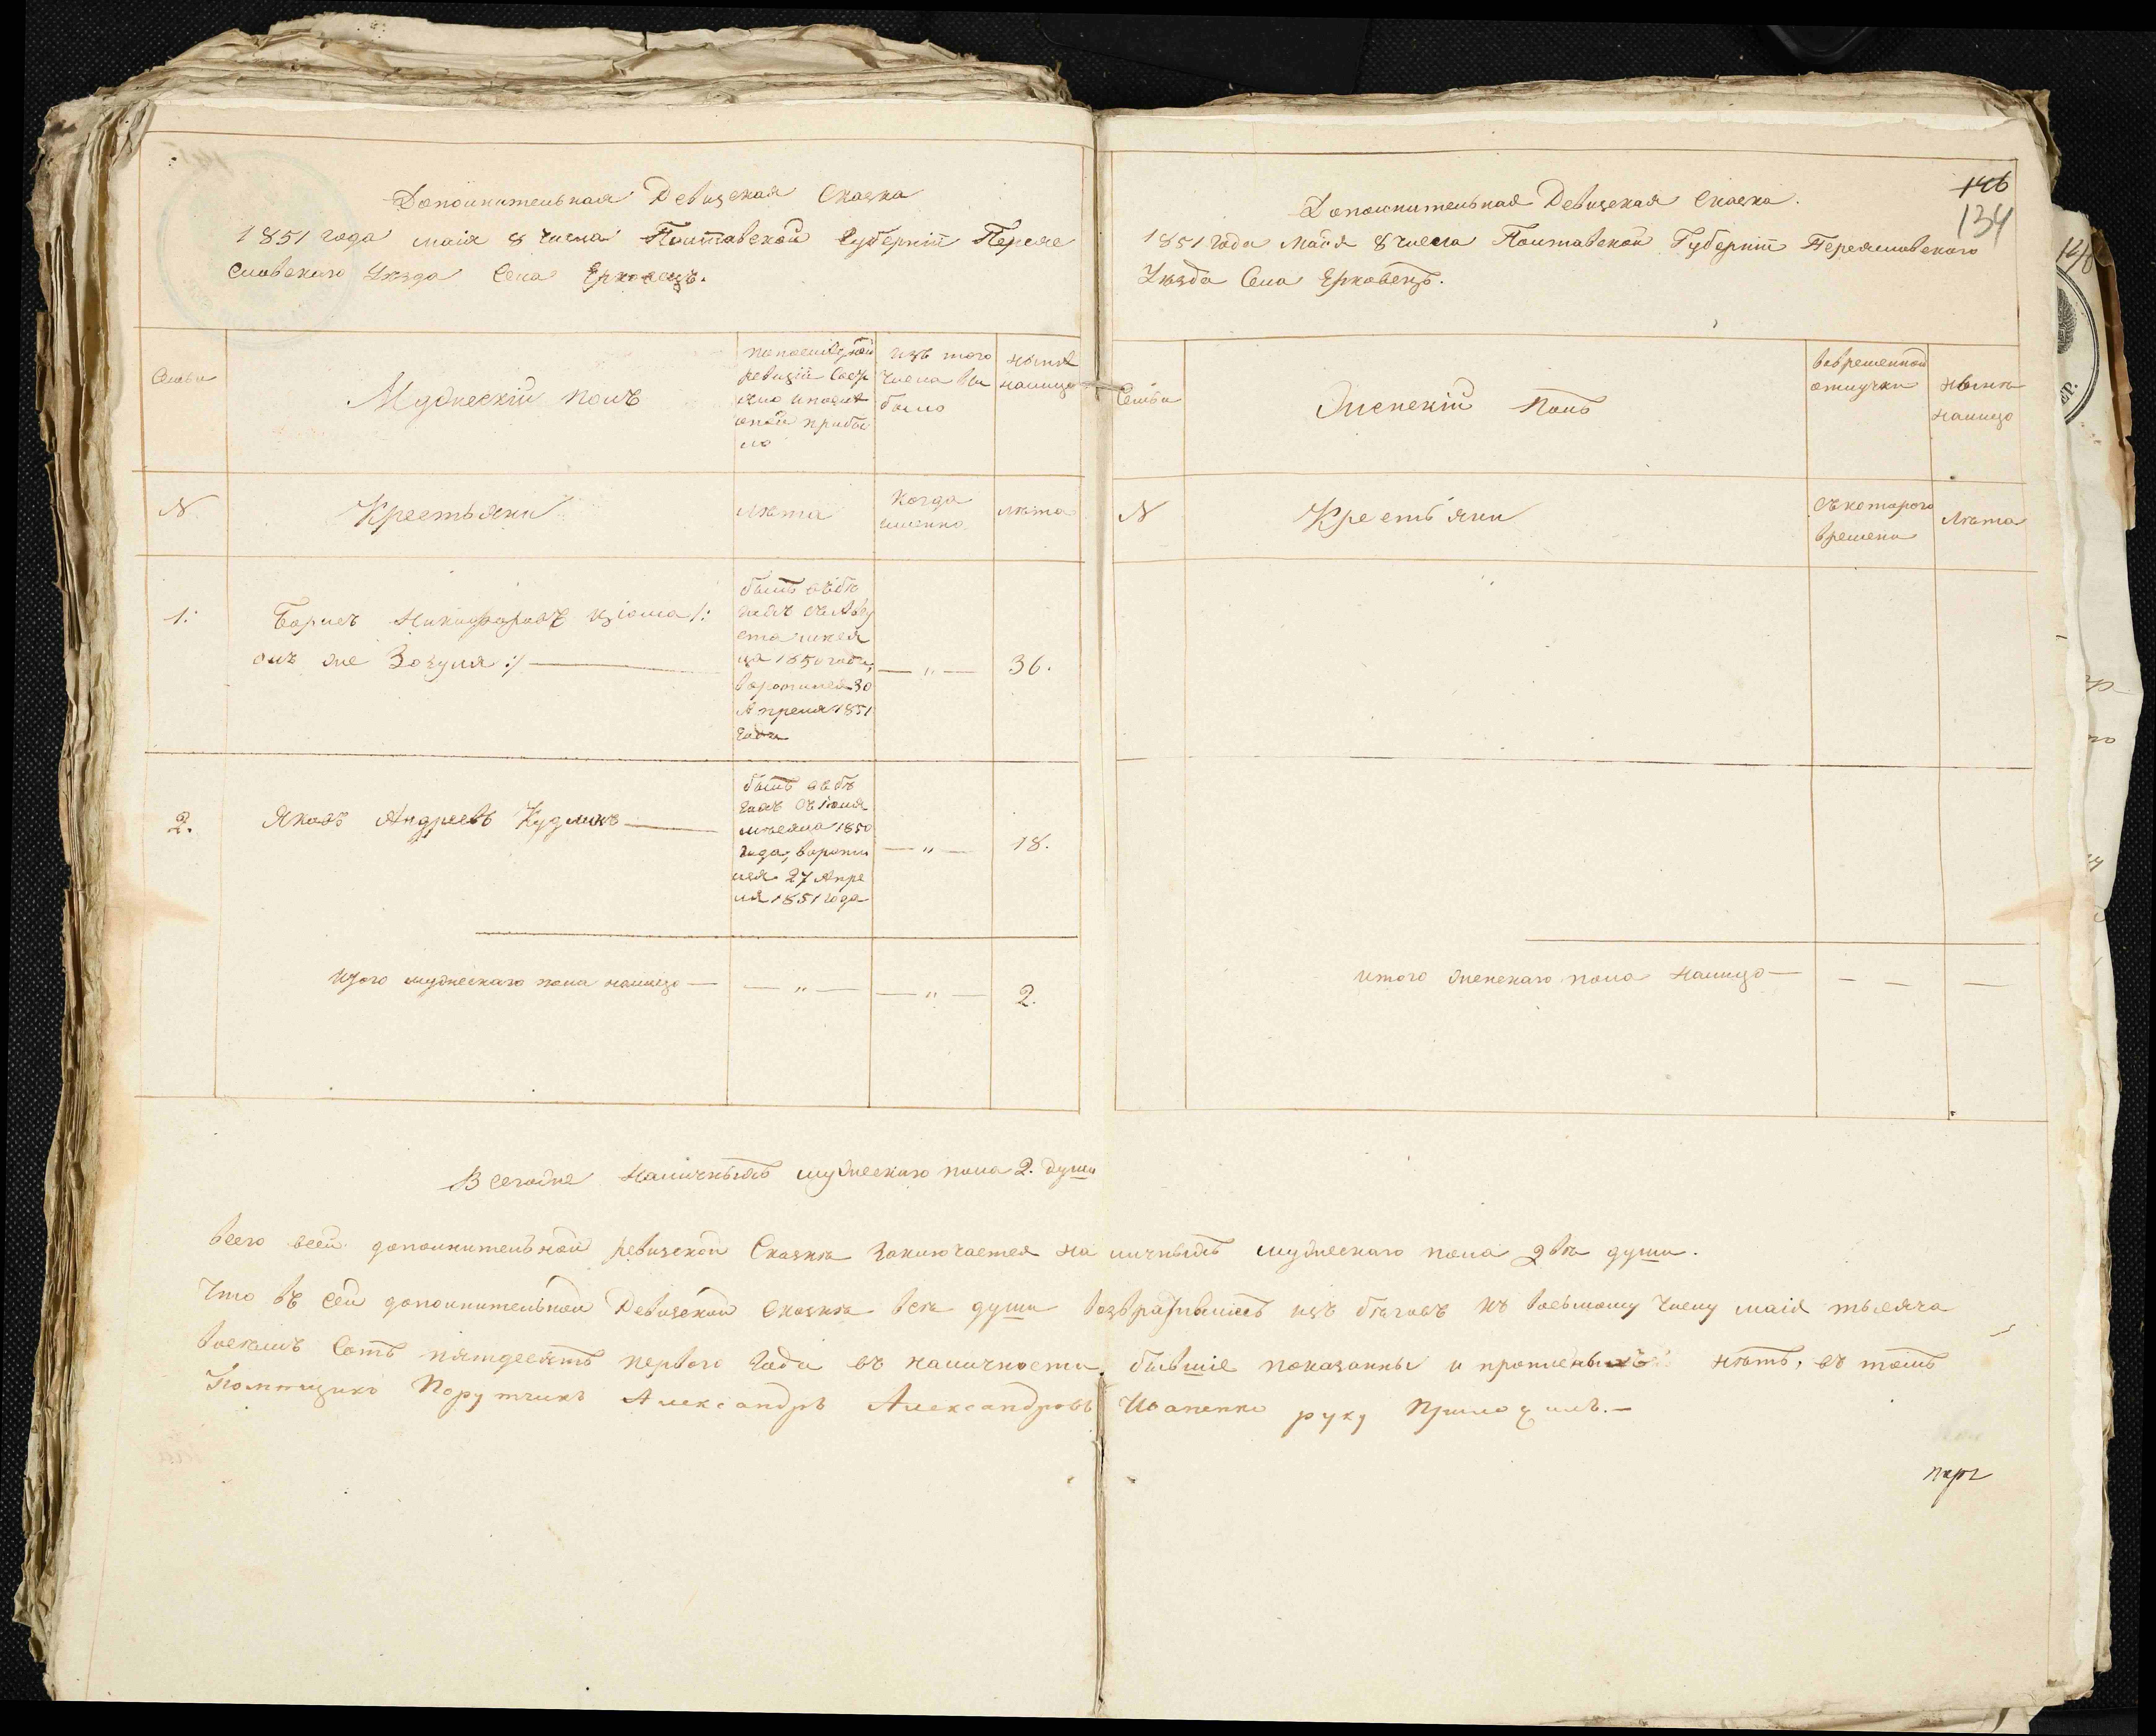 Дополнительная Ревизская Сказка
1851 года маія 8 числа Полтавской Губерніи Перея
славскаго Уезда Села Ерковецъ.
Семьи
Мужескій полъ
по последней
ревизіи Состо
яло и после
оной прибы
ло
изъ того
числа вы
было
ныне
налицо
N
Крестьяни
лѣта
Когда
именно
лѣта
1.
Борисъ Никифоровъ Кзюма /:
онъ же Зозуля :/
бытъ въ бѣ
гахъ съ Авгу
ста меся
ца 1850 года,
воротился 30
Апреля 1851
года
— " —
36.
2.
Яковъ Андреевъ Кудликъ
бытъ въ бѣ
гахъ съ Іюля
месяца 1850
года, вороти
лся 27 Апре
ля 1851 года
— " —
18.
Итого мужескаго пола налицо —
— " —
— " —
2.
146
134
Дополнительная Ревизская Сказка.
1851 года Маія 8 числа Полтавской Губерніи Переяславскаго
Уезда Села Ерковецъ.
Семьи
Женскій Полъ
во временной
отлучки
ныне
налицо
N
Крестьяни
Съ котораго
времени
Лѣта
итого женскаго пола налицо —
— —
—
Всего же наличныхъ мужескаго пола 2. души
Всего в сей дополнительной ревизской Сказкѣ заключается наличныхъ мужескаго пола двѣ души.
Что въ сей дополнительной Ревизской Сказкѣ всѣ души возвратившіесь изъ бѣговъ къ восьмому числу маія тысяча
восемь Сотъ пятдесятъ первого года въ наличности, бывшіе показанны и прописныхъ нѣтъ, въ томъ
Помещикъ Порутчикъ Александръ Александровъ Ивапенко руку Приложилъ.—